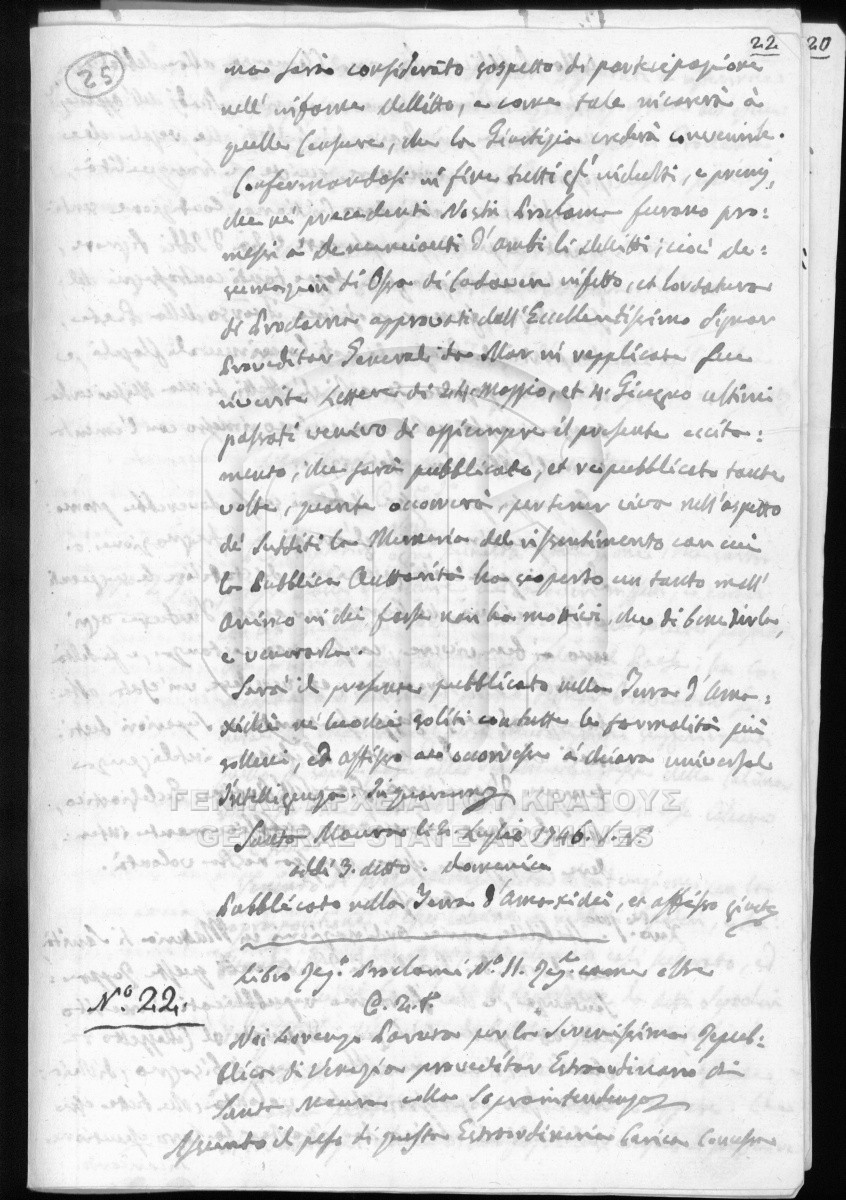 22
20
25
ma sarà considerato sospetto di partecipazione
nell' infame delitto, e come tale incorrerà à
quelle Censure, che la Giustizia crederà convenirle.
Confermandosi in fine tutti gl' indulti, e premj,
che ne precedenti Nostri Proclami furono pro=
messi à Denuncianti d'ambi li delitti; cioè de=
di Ossa di Cadavere infetto, et lordatura
di Proclama approvati dall' Eccellentissimo Signor
Proveditor General da Mar in replicate sue
riverite Lettere di 24. Maggio, et 4. Giugno ultimi
passati venivo di aggiungere il presente eccita=
mento, che sarà pubblicato, et repubblicato tante
volte, quante occorrerà, per tener viva nell' aspetto
de' Sudditi la Memoria del rissentimento con cui
la Pubblica Auttorità ha scoperto un tanto mall'
Animo in chi forse non ha mottivi, che di benedirla,
e venerarla.
Sarà il presente pubblicato nella Terra d'Ama=
xichi ne luochi soliti con tutte le formalità più
solleni, ed affisso ove occorresse à chiara universal
Intelligenza. In quorum
ΓΕΝΙΚΑ ΑΡΧΕΙΑ ΤΟΥ ΚΡΑΤΟΥΣ
GENERAL STATE ARCHIVES
Santa Maura li 2. Luglio 1746. S. N.
Addi 3. detto. Domenica
Pubblicato nella Terra d'Amaxichi, et affisso
Libro Proclami N.o 11. come oltre
N.o 22.
Noi Lorenzo Paruta per la Serenissima Repub=
blica di Venezia proveditor Estraordinario di
Santa Maura colla Sopraintendenza
Assunto il peso di questa Estraordinaria Carica